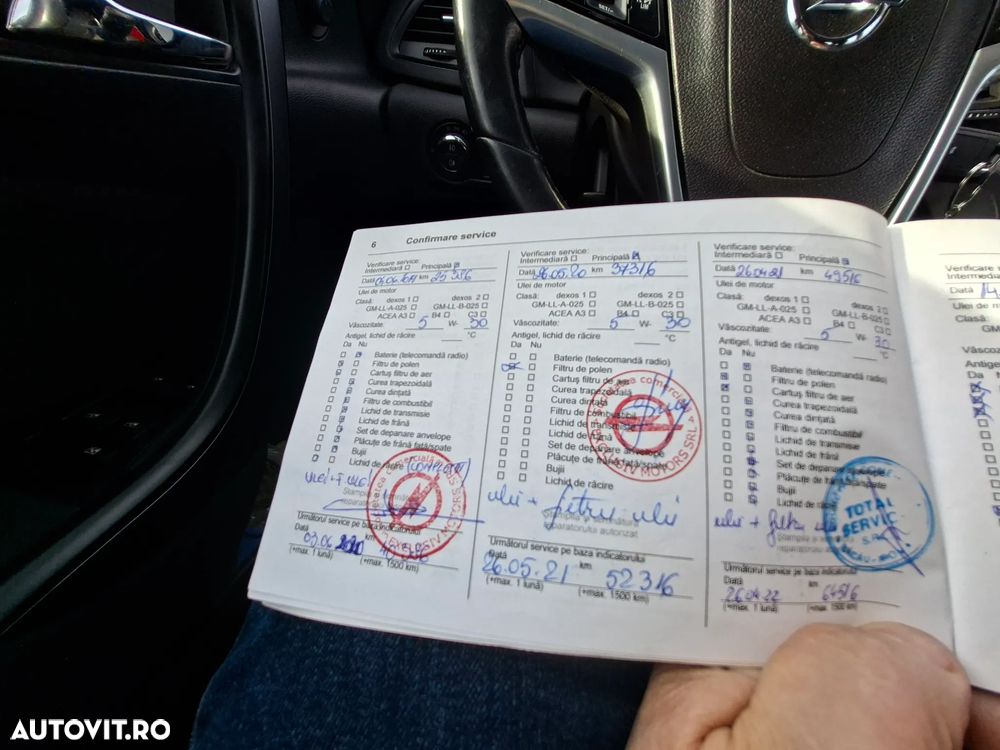 6 Confirmare service
Verificare service:
Intermediară ☐ Principală ☒
Dată km
Ulei de motor
Clasă: dexos 1 ☐ dexos 2 ☐
GM-LL-A-025 ☐ GM-LL-B-025 ☐
ACEA A3 ☐ B4 ☐ C3 ☐
Vâscozitate: 5 W- 30
Antigel, lichid de răcire °C
Da Nu
Baterie (telecomandă radio)
Filtru de polen
Cartuș filtru de aer
Curea trapezoidală
Curea dințată
Filtru de combustibil
Lichid de transmisie
Lichid de frână
Set de depanare anvelope
Plăcuțe de frână față/spate
Bujii
Lichid de răcire
Ștampila și semnătura
Următorul service pe baza indicatorului
Dată km
(+max. 1 lună) (+max. 1500 km)
Verificare service:
Intermediară ☐ Principală ☒
Dată 26.05.20 km 37316
Ulei de motor
Clasă: dexos 1 ☐ dexos 2 ☐
GM-LL-A-025 ☐ GM-LL-B-025 ☐
ACEA A3 ☐ B4 ☐ C3 ☐
Vâscozitate: 5 W- 30
Antigel, lichid de răcire °C
Da Nu
Baterie (telecomandă radio)
Filtru de polen
Cartuș filtru de aer
Curea trapezoidală
Curea dințată
Filtru de combustibil
Lichid de transmisie
Lichid de frână
Set de depanare anvelope
Plăcuțe de frână față/spate
Bujii
Lichid de răcire
ulei + filtru ulei
Ștampila și semnătura
reparatorului autorizat
Următorul service pe baza indicatorului
Dată km
26.05.21 52316
(+max. 1 lună) (+max. 1500 km)
Verificare service:
Intermediară ☐ Principală ☒
Dată 26.04.21 km 49516
Ulei de motor
Clasă: dexos 1 ☐ dexos 2 ☐
GM-LL-A-025 ☐ GM-LL-B-025 ☐
ACEA A3 ☐ B4 ☐ C3 ☐
Vâscozitate: 5 W- 30
Antigel, lichid de răcire °C
Da Nu
Baterie (telecomandă radio)
Filtru de polen
Cartuș filtru de aer
Curea trapezoidală
Curea dințată
Filtru de combustibil
Lichid de transmisie
Lichid de frână
Set de depanare
Plăcuțe de frână față/spate
Bujii
Lichid de răcire
TOTAL
SERVIC
ulei + filtru
Următorul service pe baza indicatorului
Dată km
26.04.22 64516
(+max. 1 lună) (+max. 1500 km)
AUTOVIT.RO